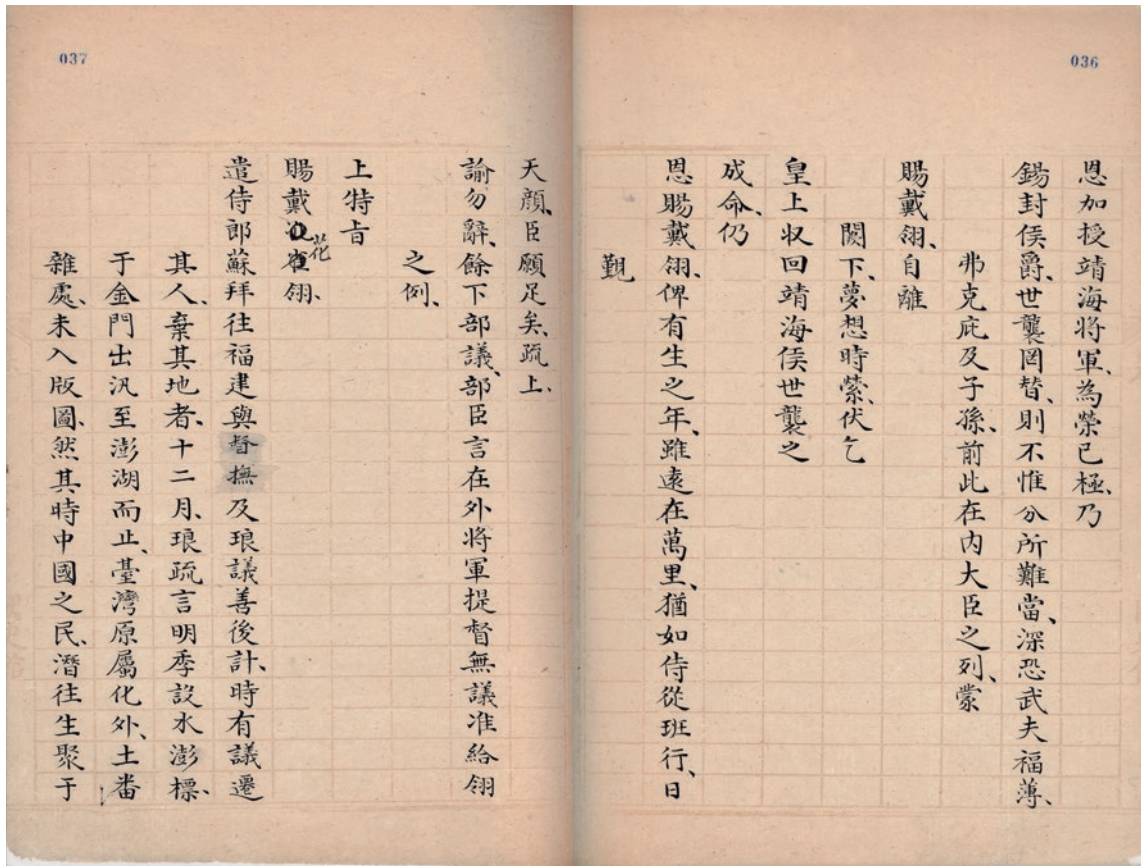 036
恩加授靖海将軍、為榮已極、乃
錫封侯爵、世襲罔替、則不惟分所難當、深恐武夫福薄、
弗克庇及子孫、前此在内大臣之列、蒙
賜戴翎、自離
闕下、夢想時縈、伏乞
皇上収回靖海侯世襲之
成命、仍
恩賜戴翎、俾有生之年、雖遠在萬里、猶如侍從班行、日
覲
037
天顔、臣願足矣、疏上、
諭勿辭、餘下部議、部臣言在外将軍提督無議准給翎
之例、
上特旨
賜戴花翎、
遣侍郎蘇拜往福建與督撫及琅議善後計、時有議遷
其人、棄其地者、十二月、琅疏言明季設水澎標、
于金門出汛至澎湖而止、臺灣原屬化外、土番
雜處、未入版圖、然其時中國之民、潛往生聚于